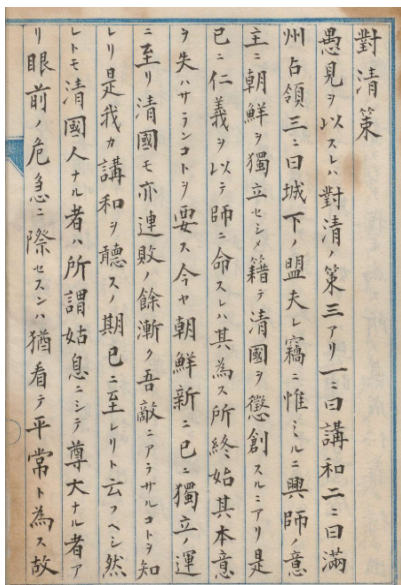 對清策
愚見ヲ以スレハ對清ノ策三アリ一ニ曰講和二ニ曰滿
州占領三ニ曰城下ノ盟夫レ竊ニ惟ミルニ興師ノ意
主ニ朝鮮ヲ獨立セシメ籍テ清國ヲ懲創スルニアリ是
已ニ仁義ヲ以テ師ニ命スレハ其為ス所終始其本意
ヲ失ハサランコトヲ要ス今ヤ朝鮮新ニ已ニ獨立ノ運
ニ至リ清國モ亦連敗ノ餘漸ク吾敵ニアラサルコトヲ知
レリ是我カ講和ヲ聽スノ期已ニ至レリト云フヘシ然
レトモ清國人ナル者ハ所謂姑息ニシテ尊大ナル者ア
リ眼前ノ危急ニ際セスンハ猶看テ平常ト為ス故